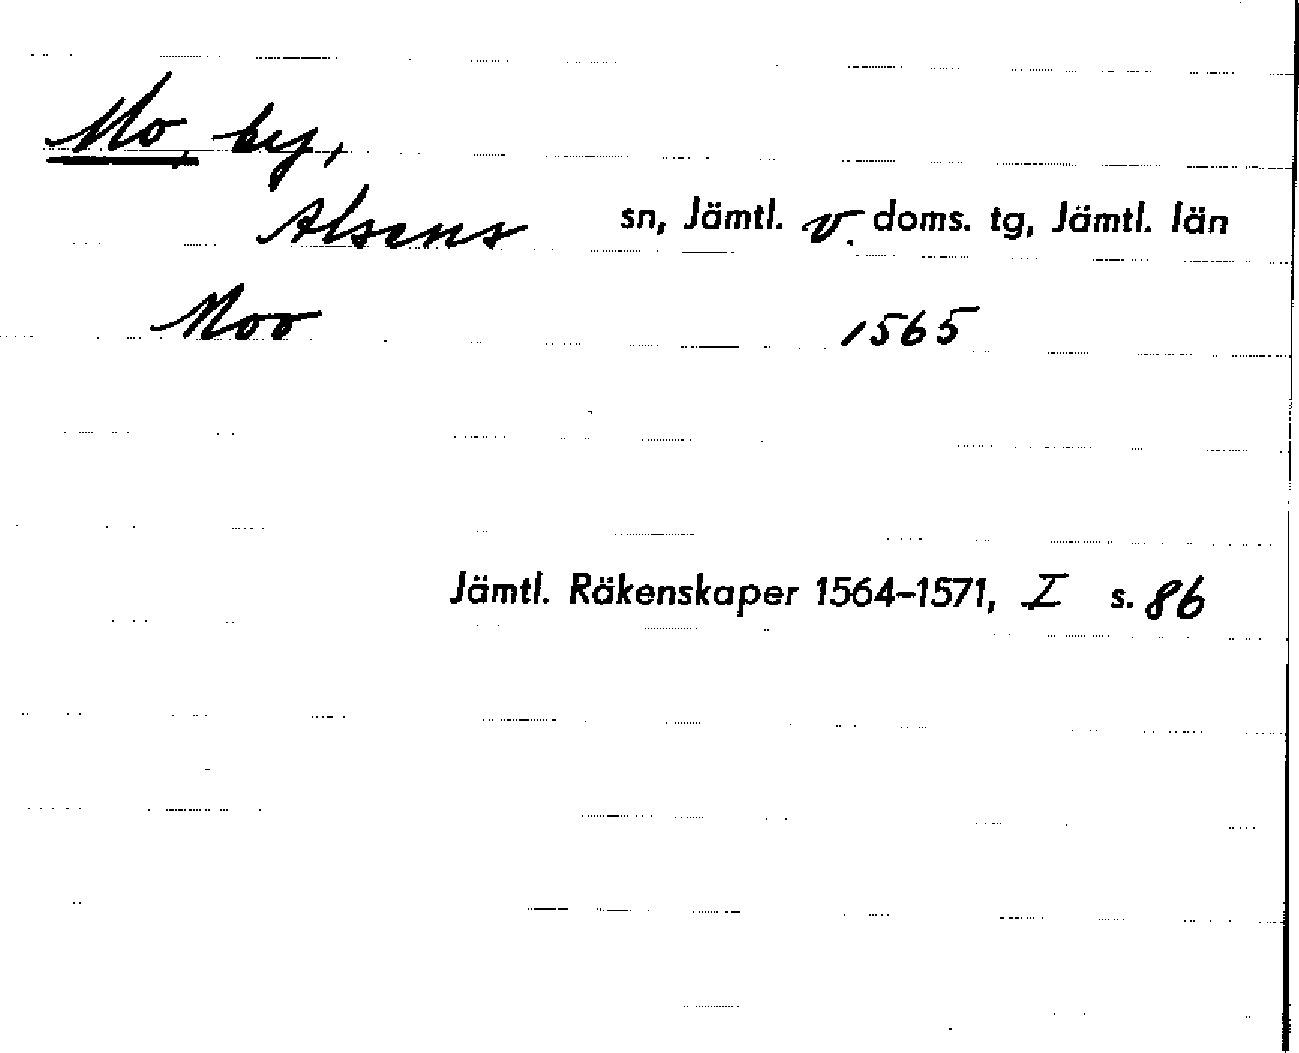 Mo, by,
Alsens sn, Jämtl. v. doms. tg, Jämtl. län
Moo 1565
Jämtl. Räkenskaper 1564-1571, I s. 86